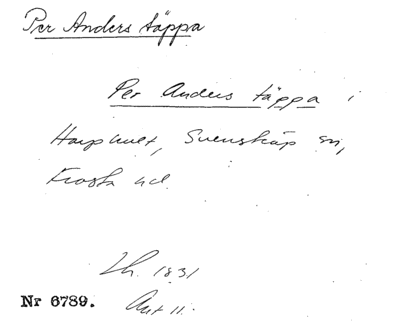 Per Anders täppa
Per Anders täppa i
Harphult, Svensköp sn,
Frosta hd.
Lh. 1831
Akt 11.
Nr 6789.